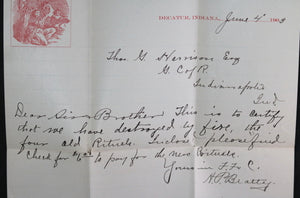 DECATUR, INDIANA, June 4 1903
Thos G. Harrison Esq
G. C of P.
Indianapolis
Ind
Dear Sir & Brother This is to certify
that we have destroyed by fire, the
four old Rituals Inclosed please find
check for to pay for the new Rituals.
Yours in F. F. C.
H. P. Beatty